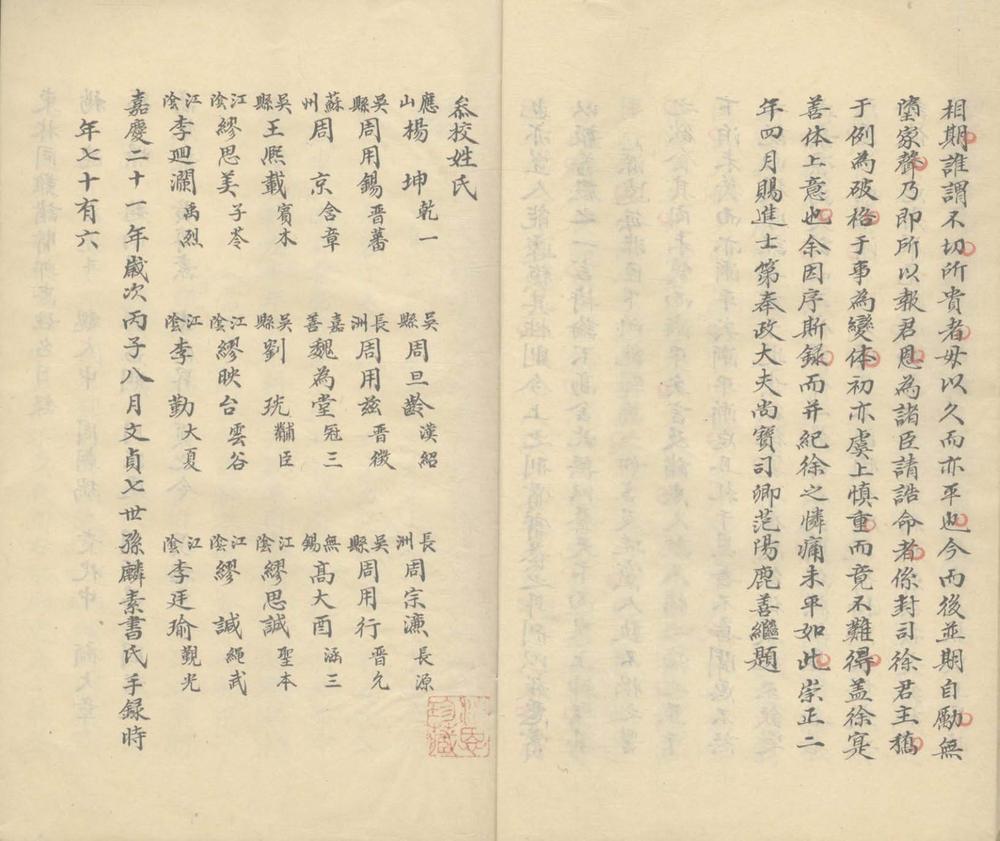 相期誰謂不切所貴者毋以久而亦平也今而後並期自勵無
墮家聲乃即所以報君恩為諸臣請誥命者係封司徐君主稿
于例為破格于事為變体初亦虞上慎重而竟不難得盖徐寔
善体上意也余因序斯録而并紀徐之憐痛未平如此崇正二
年四月賜進士第奉政大夫尚寶司卿范陽鹿善繼題
叅校姓氏
應山楊坤乾一 吳縣周旦齡漢紹 長洲周宗濂長源
吳縣周用錫晋蕃 長洲周用兹晋徴 吳縣周用行晋允
蘇州周京含章 嘉善魏為堂冠三 無錫高大酉涵三
吳縣王熈載賓木 吳縣劉珖黼臣 江陰繆思誠聖本
江陰繆思美子苓 江陰繆映台雲谷 江陰繆誠繩武
江陰李廻瀾禹烈 江陰李勤大夏 江陰李廷瑜覲光
嘉慶二十一年歲次丙子八月文貞七世孫麟素書氏手録時
年七十有六
珍藏